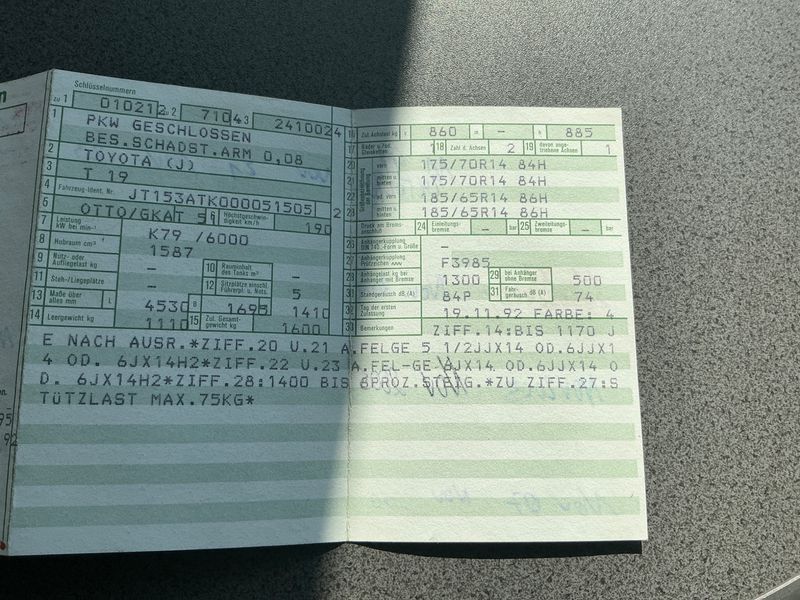 Schlüsselnummern
zu 1 010212 zu 2 7104 3 2410024
1 PKW GESCHLOSSEN
BES.SCHADST.ARM 0,08
2 TOYOTA (J)
3 T 19
4 Fahrzeug-Ident. Nr. JT153ATK000051505 2
5 OTTO/GKAT 5 6 Höchstgeschwindigkeit km/h 190
7 Leistung kW bei min⁻¹ K79 /6000
8 Hubraum cm³ 1587
9 Nutz- oder Aufliegelast kg – 10 Rauminhalt des Tanks m³ –
11 Steh-/Liegeplätze – 12 Sitzplätze einschl. Führerpl. u. Nots. 5
13 Maße über alles mm L 4530 B 1695 1410
14 Leergewicht kg 1110 15 Zul. Gesamtgewicht kg 1600
16 Zul. Achslast kg v 860 m – h 885
17 Räder u./od. Gleisketten 1 18 Zahl d. Achsen 2 19 davon angetriebene Achsen 1
20 vorn 175/70R14 84H
21 mitten u. hinten 175/70R14 84H
22 od. vorn 185/65R14 86H
23 mitten u. hinten 185/65R14 86H
Druck am Bremsanschluß 24 Einleitungsbremse – bar 25 Zweileitungsbremse – bar
26 Anhängerkupplung DIN 740..-Form u. Größe –
27 Anhängerkupplung Prüfzeichen F3985
28 Anhängelast kg bei Anhänger mit Bremse 1300 29 bei Anhänger ohne Bremse 500
30 Standgeräusch dB (A) 84P 31 Fahrgeräusch dB (A) 74
32 Tag der ersten Zulassung 19.11.92 FARBE: 4
33 Bemerkungen ZIFF.14:BIS 1170 J
E NACH AUSR.*ZIFF.20 U.21 A.FELGE 5 1/2JJX14 OD.6JJX1
4 OD. 6JX14H2*ZIFF.22 U.23 A.FEL-GE 6JX14 OD.6JJX14 O
D. 6JX14H2*ZIFF.28:1400 BIS 8PROZ.STEIG.*ZU ZIFF.27:S
TÜTZLAST MAX.75KG*